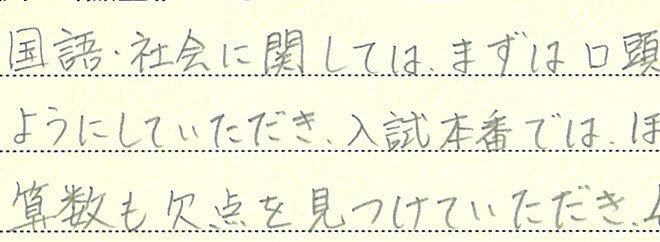 国語・社会に関しては、まずは口頭
ようにしていただき、入試本番では、ほ
算数も欠点を見つけていただき、